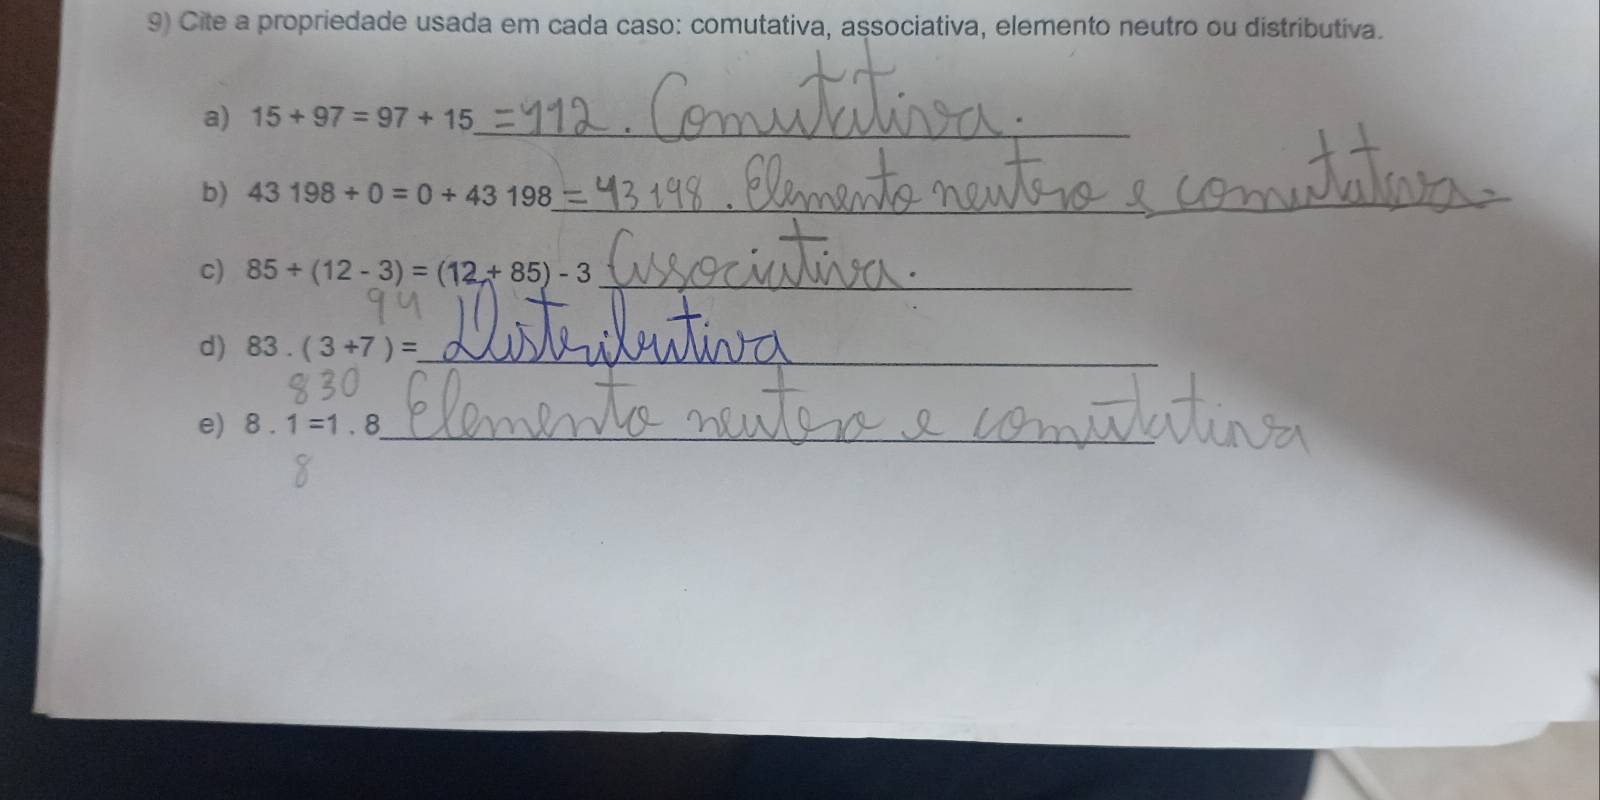 9) Cite a propriedade usada em cada caso: comutativa, associativa, elemento neutro ou distributiva.
a) 15 + 97 = 97 + 15 = 112. Comutativa.
b) 43 198 + 0 = 0 + 43 198 = 43 198. Elemento neutro e comutativa.
c) 85 + (12 - 3) = (12 + 85) - 3 Associativa.
94
d) 83 . ( 3 +7 ) = Distributiva
830
e) 8 . 1 =1 . 8 Elemento neutro e comutativa
8